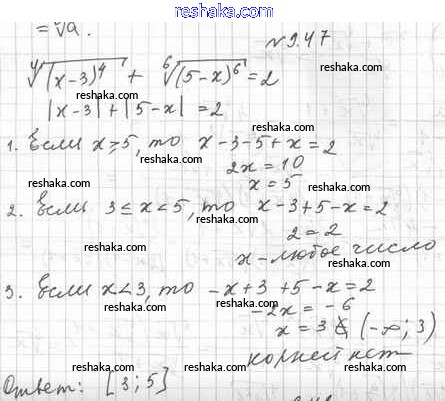 www.reshaka.com
= ∜a.
№9.47
∜(x-3)⁴ + ⁶√(5-x)⁶ = 2
reshaka.com
reshaka.com
|x-3| + |5-x| = 2
reshaka.com
1. Если x≥5, то x-3-5+x=2
2x=10
reshaka.com
reshaka.com
x=5
2. Если 3≤x<5, то x-3+5-x=2
reshaka.com
2=2
reshaka.com
x-любое число
3. Если x<3, то -x+3+5-x=2
reshaka.com
-2x=-6
reshaka.com
x=3 ∉ (-∞; 3)
корней нет
reshaka.com
reshaka.com
Ответ: [3; 5]
reshaka.com